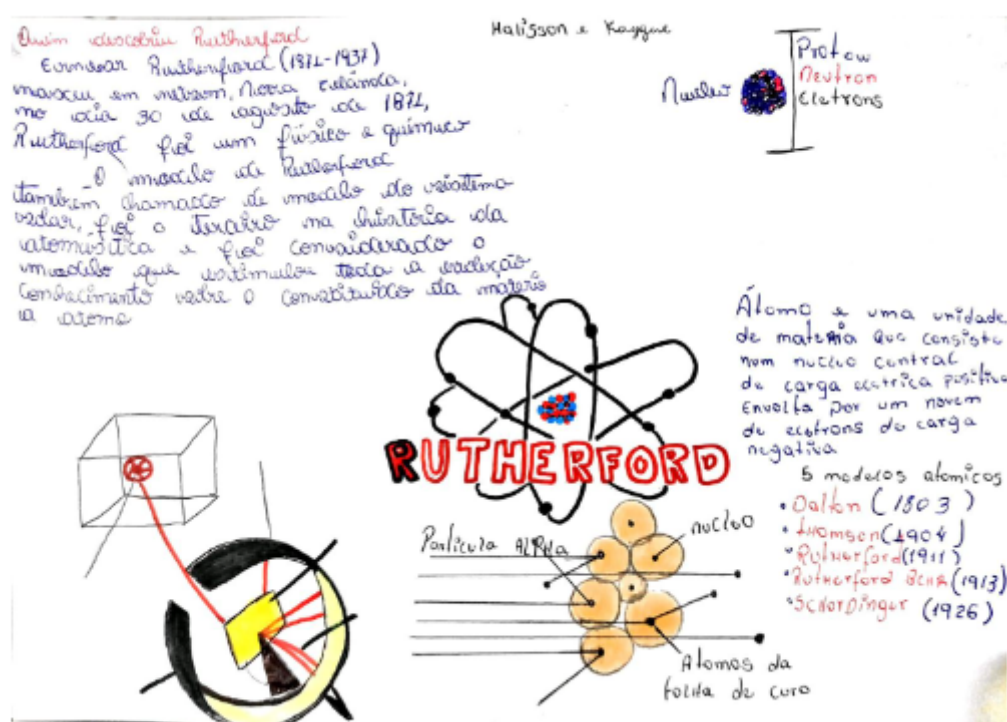 Quim descobriu Rutherford
Halisson e Kayque
Rutherford (1871-1937)
nasceu em nelson, Nova zelândia,
no dia 30 de agosto de 1871,
Rutherford foi um físico e químico
O modelo de Rutherford
também chamado de modelo do sistema
solar, foi o terceiro na história da
atomistica e foi considerado o
modelo que estimulou toda a evolução
conhecimento sobre o constituição da materia
a atomo
Nucleo
Proton
Neutron
Eletrons
Átomo e uma unidade
de materia que consiste
num nucleo central
de carga eletrica positiva
Envolta por um novem
de eletrons de carga
negativa
5 modelos atomicos
• Dalton (1803)
• thomson (1904)
• Rutherford (1911)
• Rutherford BOHR (1913)
• Schordinger (1926)
RUTHERFORD
Particula ALPHA
nucleo
Atomos da
folha de ouro